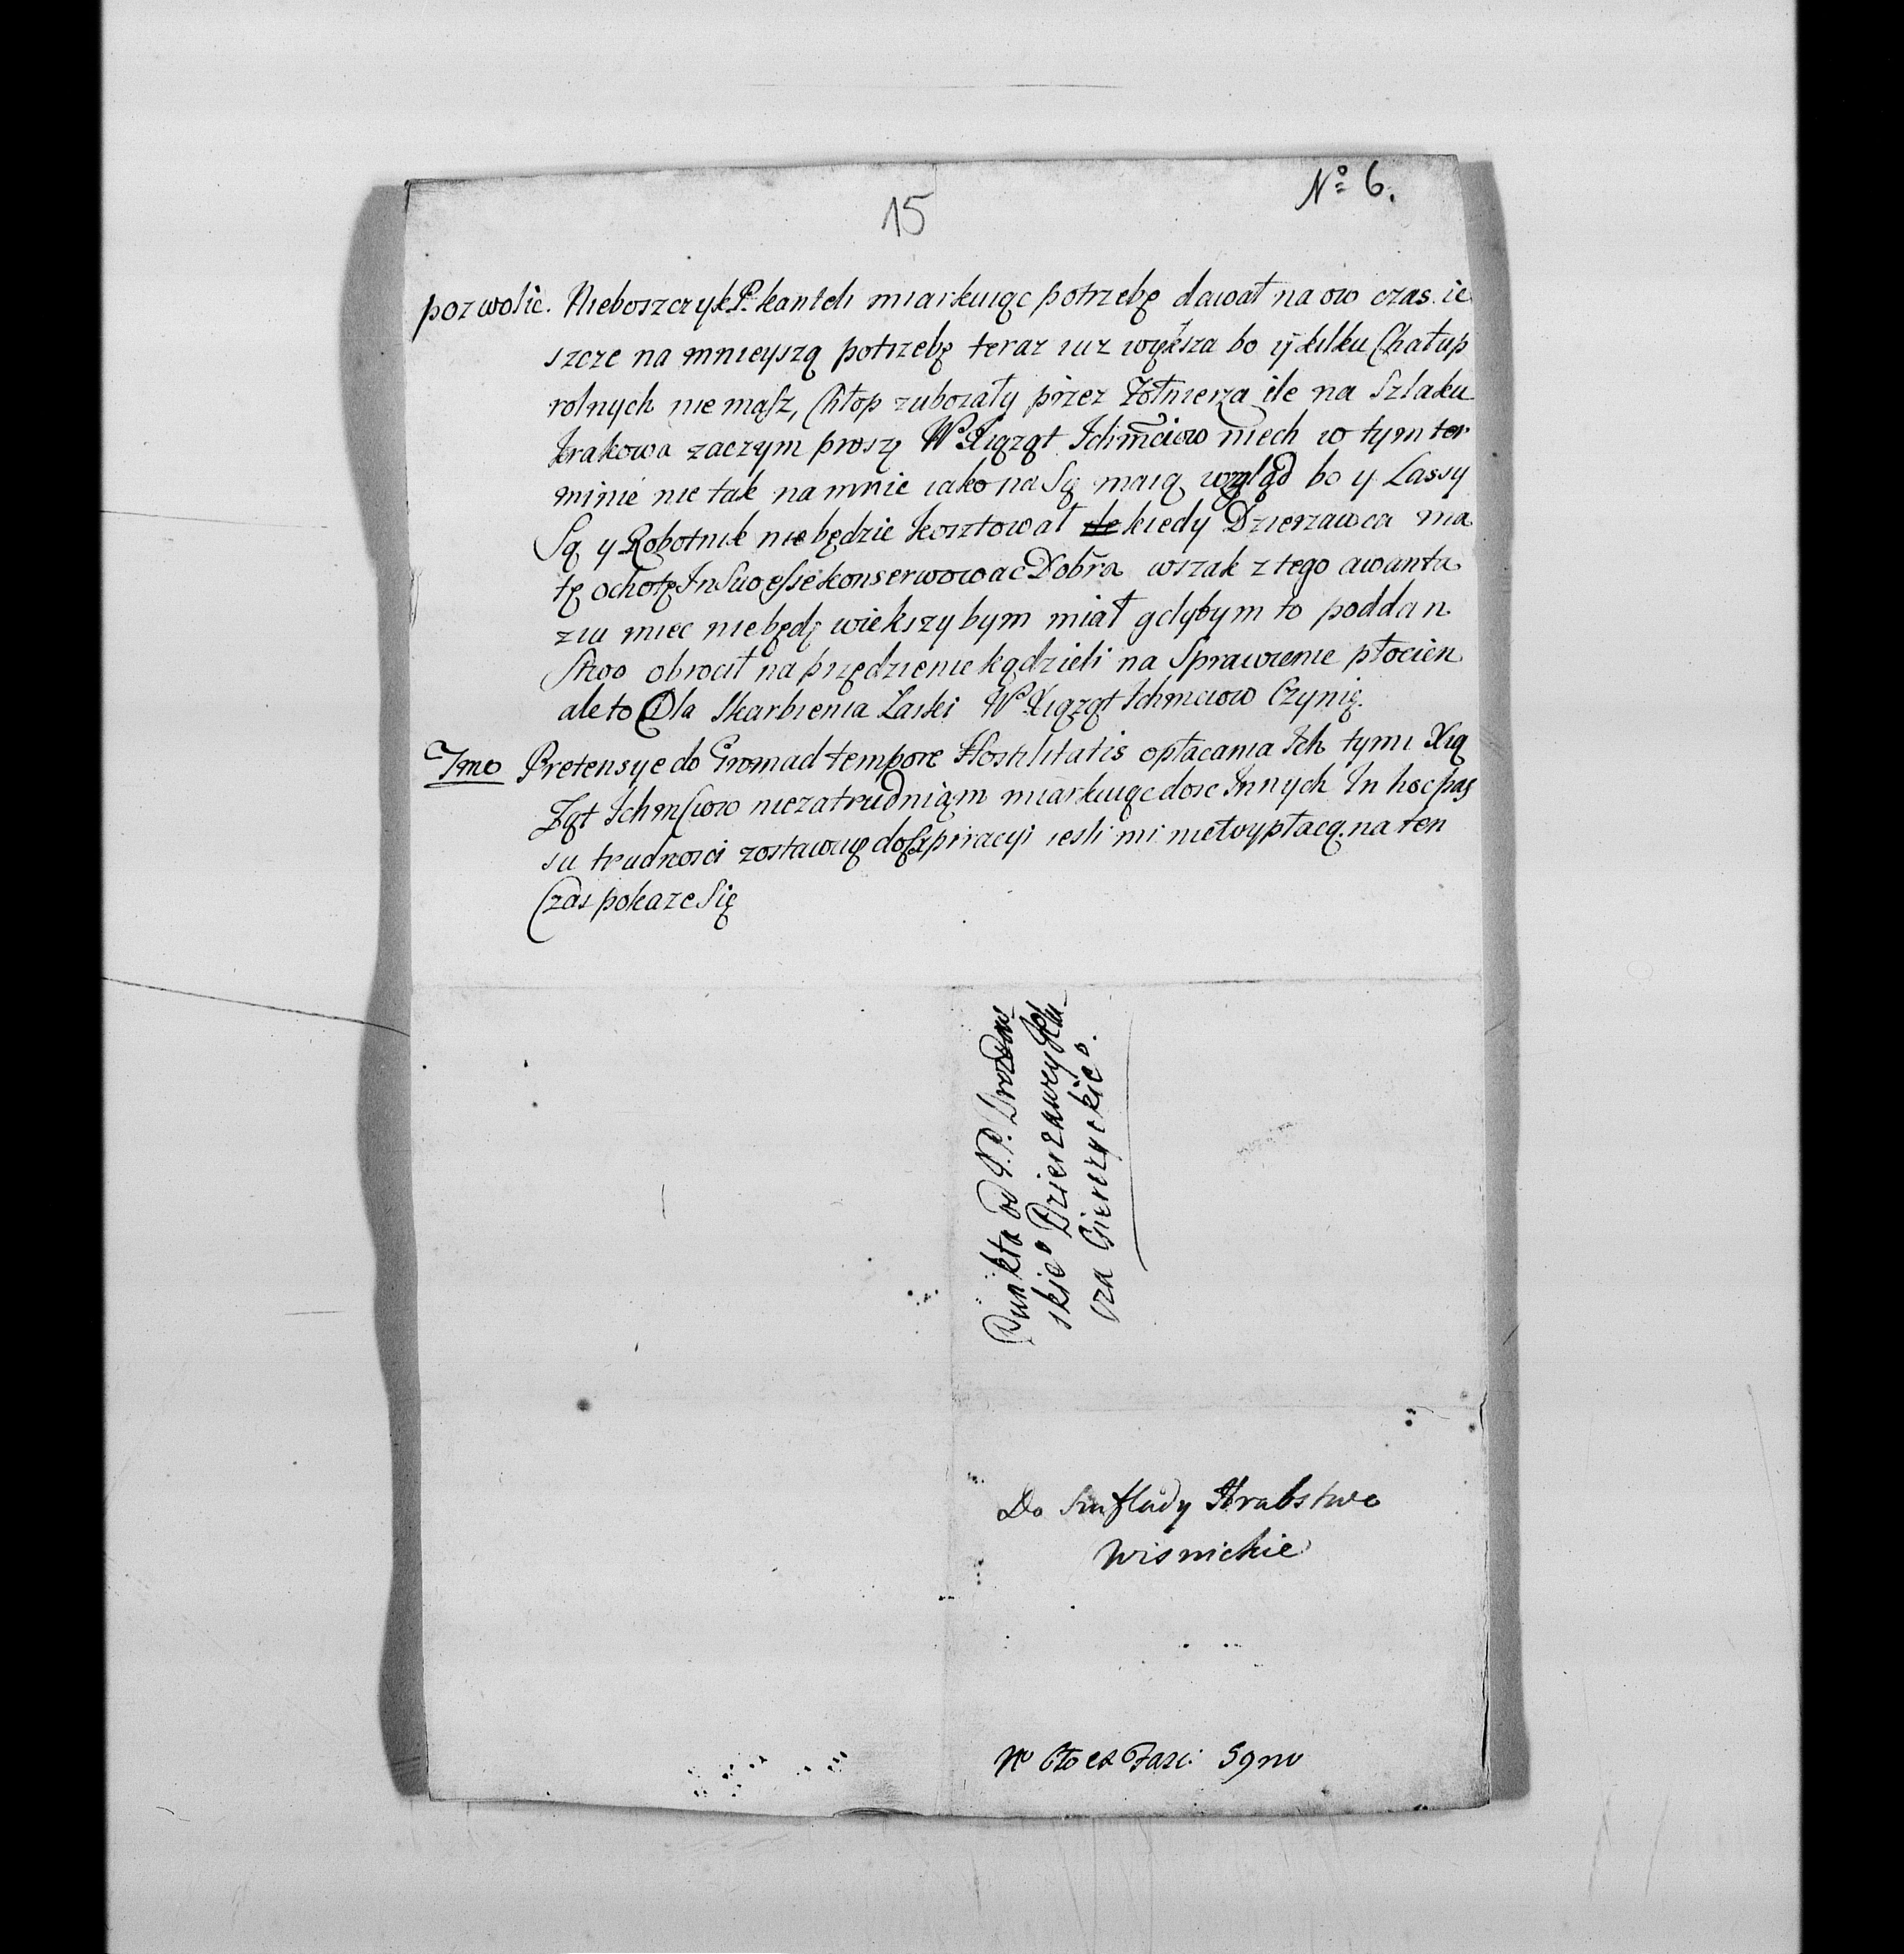 15
No 6.
pozwolic. Nieboszczyk P. kanich miarkuiąc potrzebę dawał na ow czas ie
szcze na mnieyszą potrzebę teraz iuz większa bo y kilku Chałup
rolnych nie masz, Chłop zubozały przez Zołnierza ile na Szlaku
Krakowa zaczym proszę Wch Xiąząt Ichmciow niech w tym ter
minie nie tak na mnie iako na Się maią wzgląd bo y Lassy
Są y Robotnik nie będzie kosztował kiedy Dzierzawca ma
tę ochotę In Suo esse konserwowac Dobra wszak z tego awanta
ziu miec niebędę wiekszy bym miał gdybym to poddan
stwo obrocił na przędzenie kądzieli na Sprawienie płocien
ale to Dla Skarbienia Łaski Wch Xiąząt Ichmciow Czynię.
7mo Pretensye do Gromad tempore Hostilitatis opłacania Ich tymi Xią
Ząt Ichmciow niezatrudniąm miarkuiąc dosc Innych In hoc pas
su trudnosci zostawuię do Expiracyi iesli mi niewypłacą na ten
Czas pokaze Się
Punkta od J.P. Drozdow-
skieo Dzierzawcy Klu-
cza Gierczyckieo.
Do Szuflady Hrabstwo
Wisnickie
No 6to ex Fasc: 59no